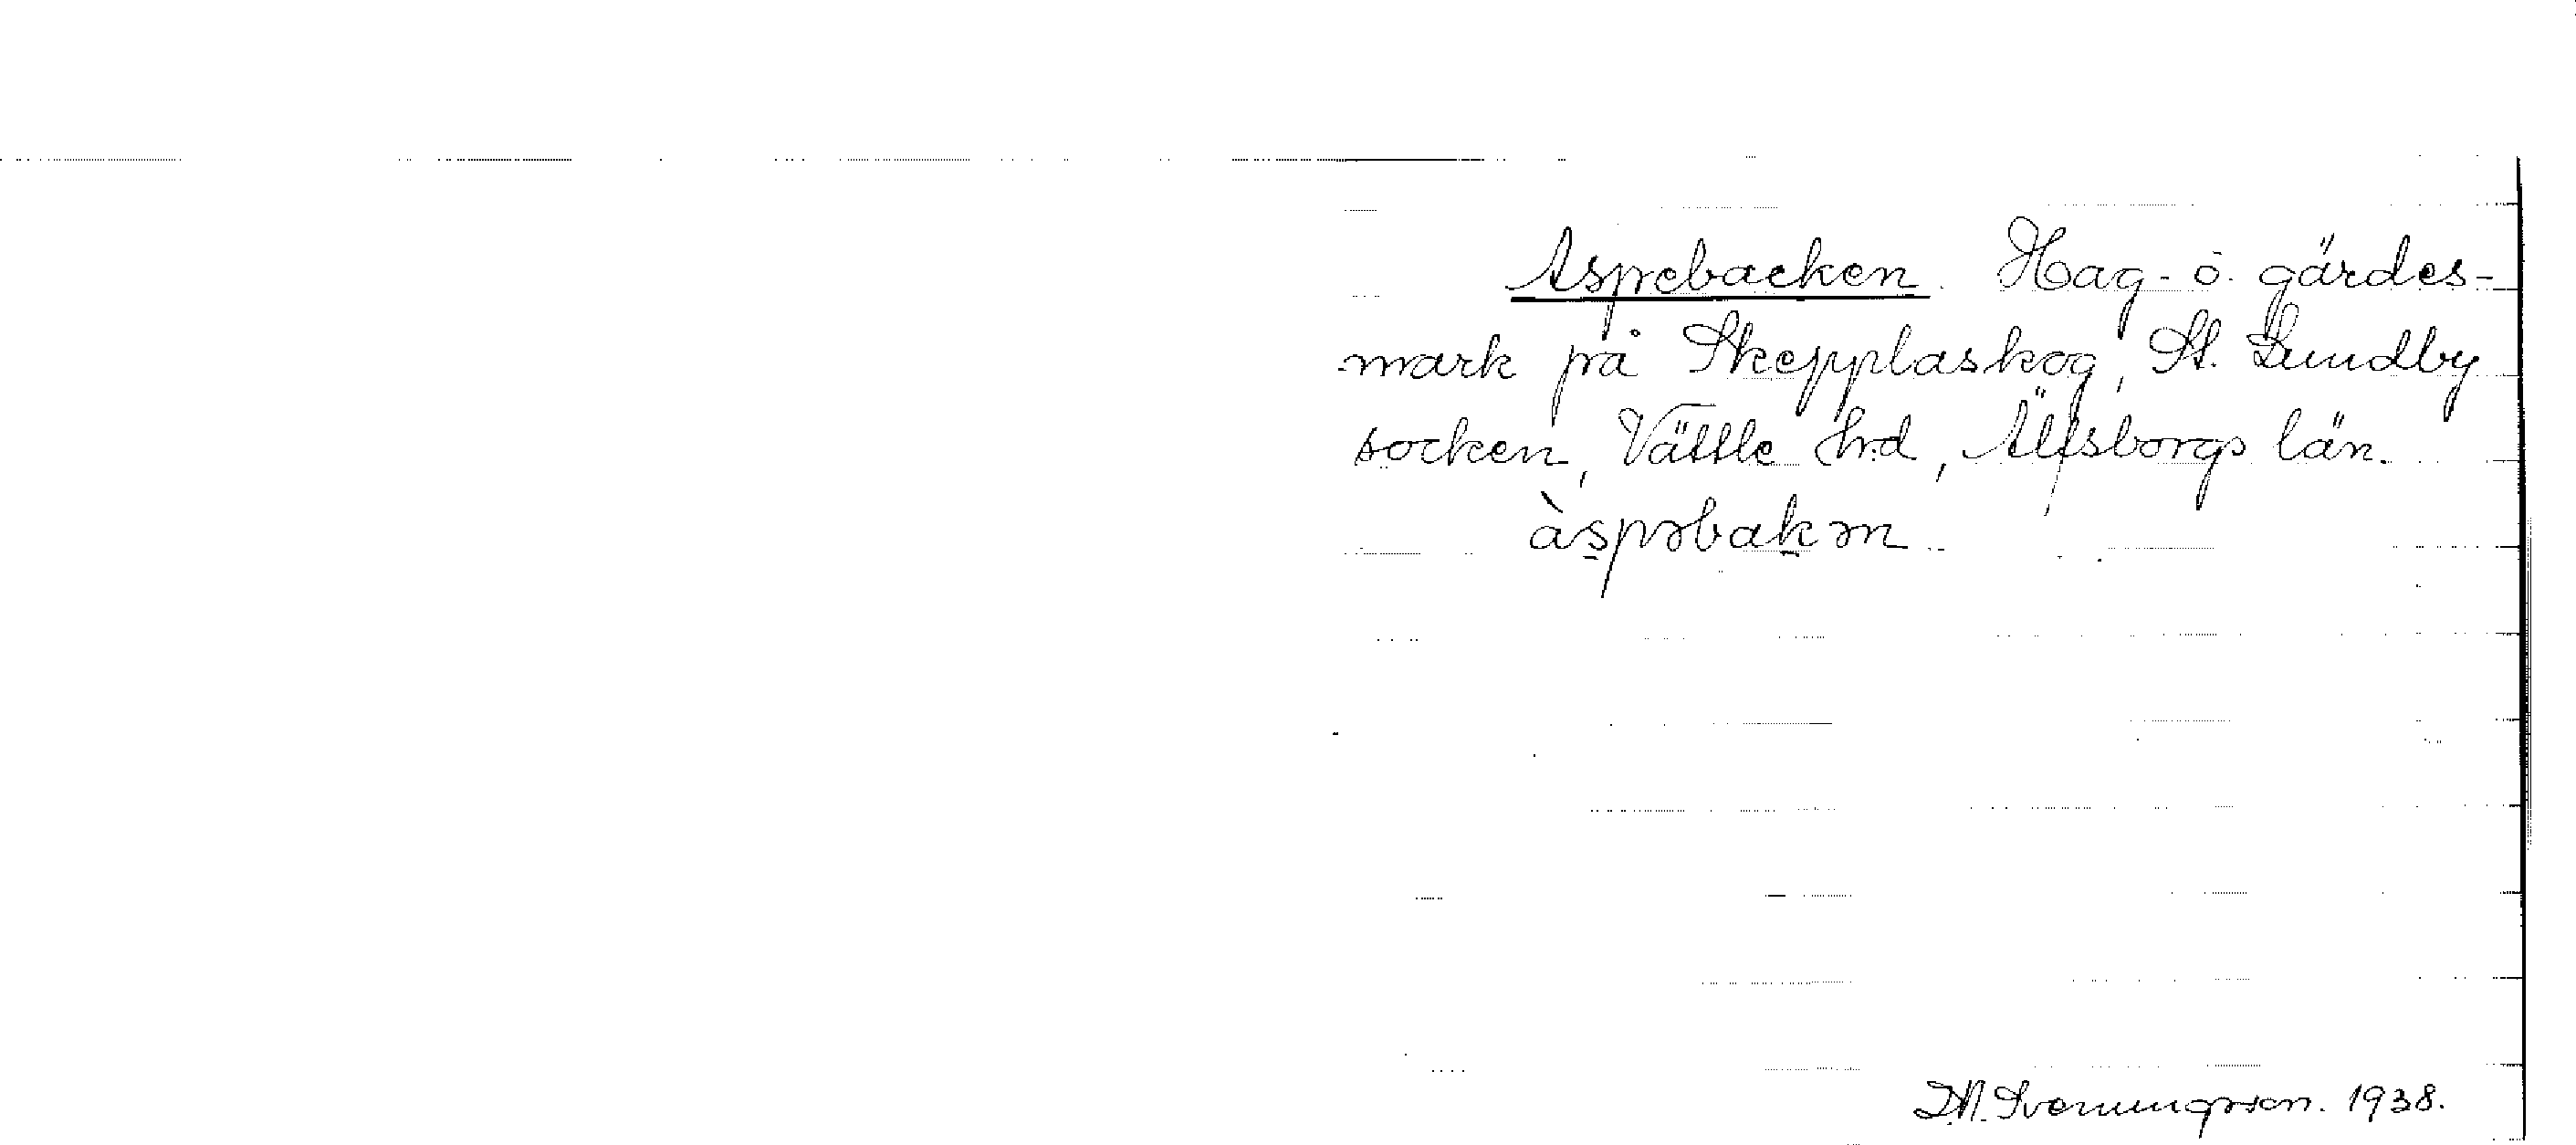 Aspebacken. Hag- o. gärdes-
mark på Skepplaskog, St. Lundby
socken, Vättle hd, Älfsborgs län.
àspəbakən
M. Sveningsson. 1938.